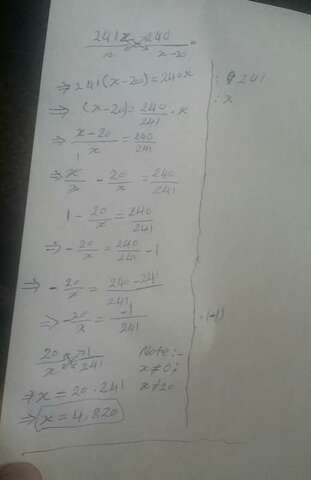 241/x = 240/x-20
⇒ 241(x-20)=240x : 241
⇒ (x-20)= 240/241 · x : x
⇒ x-20/x = 240/241
⇒ x/x - 20/x = 240/241
1 - 20/x = 240/241
⇒ - 20/x = 240/241 - 1
⇒ - 20/x = 240-241/241
⇒ - 20/x = -1/241 ·(-1)
20/x = 1/241 Note:-
x≠0;
⇒ x = 20·241 x≠20
⇒ x = 4,820